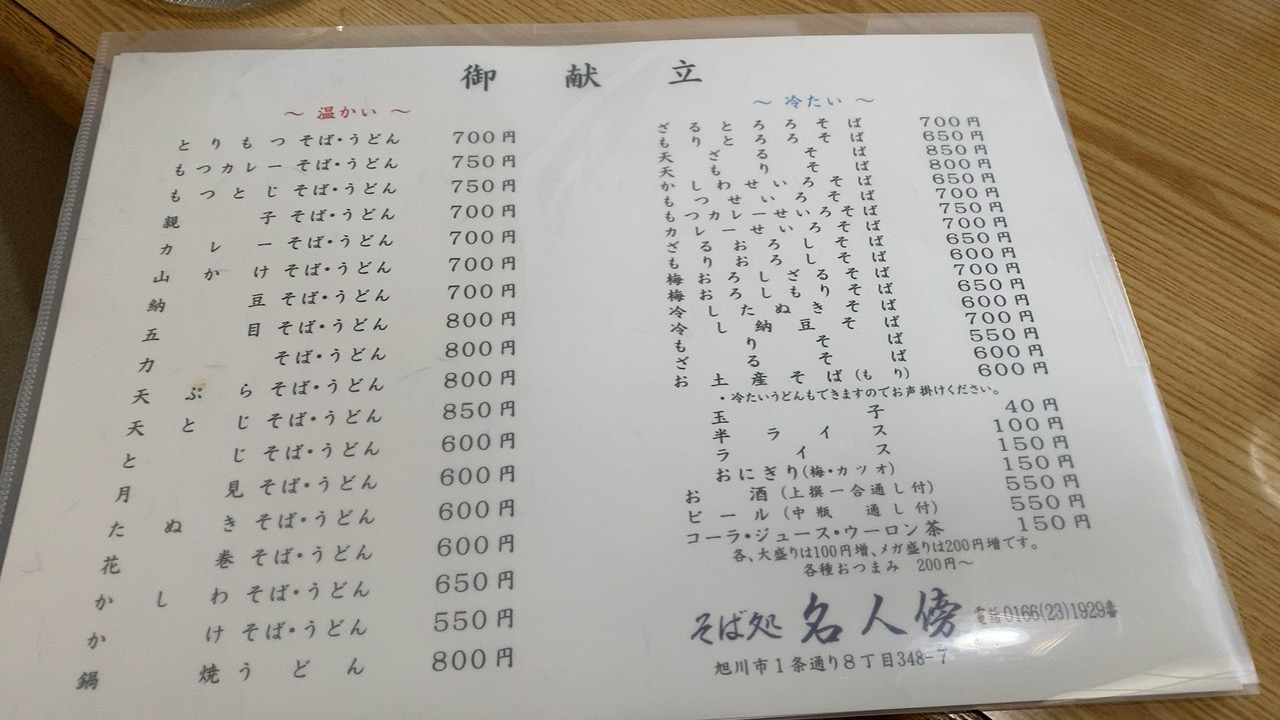 御献立
～ 温かい ～
とりもつそば・うどん 700円
もつカレーそば・うどん 750円
もつとじそば・うどん 750円
親子そば・うどん 700円
カレーそば・うどん 700円
山かけそば・うどん 700円
納豆そば・うどん 700円
五目そば・うどん 800円
力そば・うどん 800円
天ぷらそば・うどん 800円
天とじそば・うどん 850円
とじそば・うどん 600円
月見そば・うどん 600円
たぬきそば・うどん 600円
花巻そば・うどん 600円
かしわそば・うどん 650円
かけそば・うどん 550円
鍋焼うどん 800円
～ 冷たい ～
ざるとろろそば 700円
もりとろろそば 650円
天ざるそば 850円
天もりそば 800円
かしわせいろそば 650円
もつせいろそば 700円
もつカレーせいろそば 750円
カレーせいろそば 700円
ざるおろしそば 650円
もりおろしそば 600円
梅おろしざるそば 700円
梅おろしもりそば 650円
冷したぬきそば 600円
冷し納豆そば 700円
もりそば 550円
ざるそば 600円
お土産そば(もり) 600円
・冷たいうどんもできますのでお声掛けください。
玉子 40円
半ライス 100円
ライス 150円
おにぎり(梅・カツオ) 150円
お酒(上撰一合通し付) 550円
ビール(中瓶 通し付) 550円
コーラ・ジュース・ウーロン茶 150円
各、大盛りは100円増、メガ盛りは200円増です。
各種おつまみ 200円～
そば処 名人傍 電話0166(23)1929番
旭川市1条通り8丁目348-7